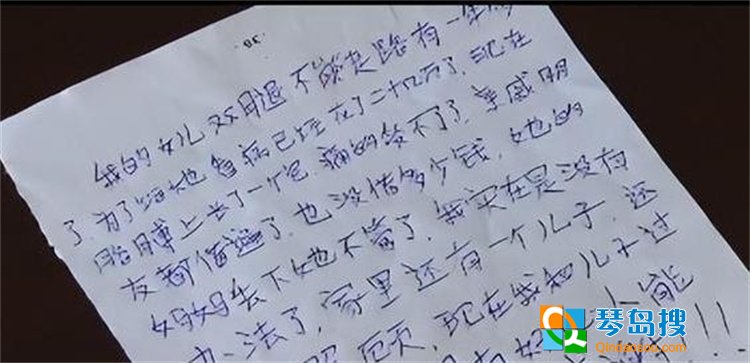 ·38·
我的女儿双腿不能走路有一年多
了.为了给她看病已经花了二十几万了.现在
胳膊上长了一个包.痛的受不了了.亲戚朋
友都借遍了.也没借多少钱.她的
妈妈丢下她也不管了.我实在是没有
办法了.家里还有一个儿子.还
现在我和儿子过
能
琴岛搜
Qindaosou.com